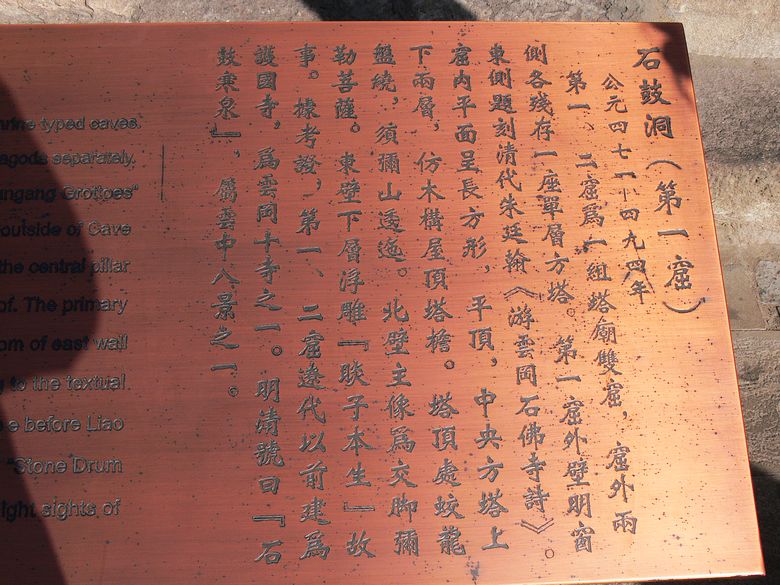 石鼓洞（第一窟）
公元四七一—四九四年
第一、二窟爲一組塔廟雙窟，窟外兩
側各殘存一座單層方塔。第一窟外壁明窗
東側題刻清代朱廷翰《游雲岡石佛寺詩》。
窟内平面呈長方形，平頂，中央方塔上
下兩層，仿木構屋頂塔檐。塔頂處蛟龍
盤繞，須彌山逶迤。北壁主像爲交脚彌
勒菩薩。東壁下層浮雕『睒子本生』故
事。據考證，第一、二窟遼代以前建爲
護國寺，爲雲岡十寺之一。明清號曰『石
鼓寒泉』，屬雲中八景之一。
hrine typed caves.
agoda separately.
ungang Grottoes"
outside of Cave
the central pillar
of. The primary
om of east wall
g to the textual
e before Liao
"Stone Drum
ight sights of